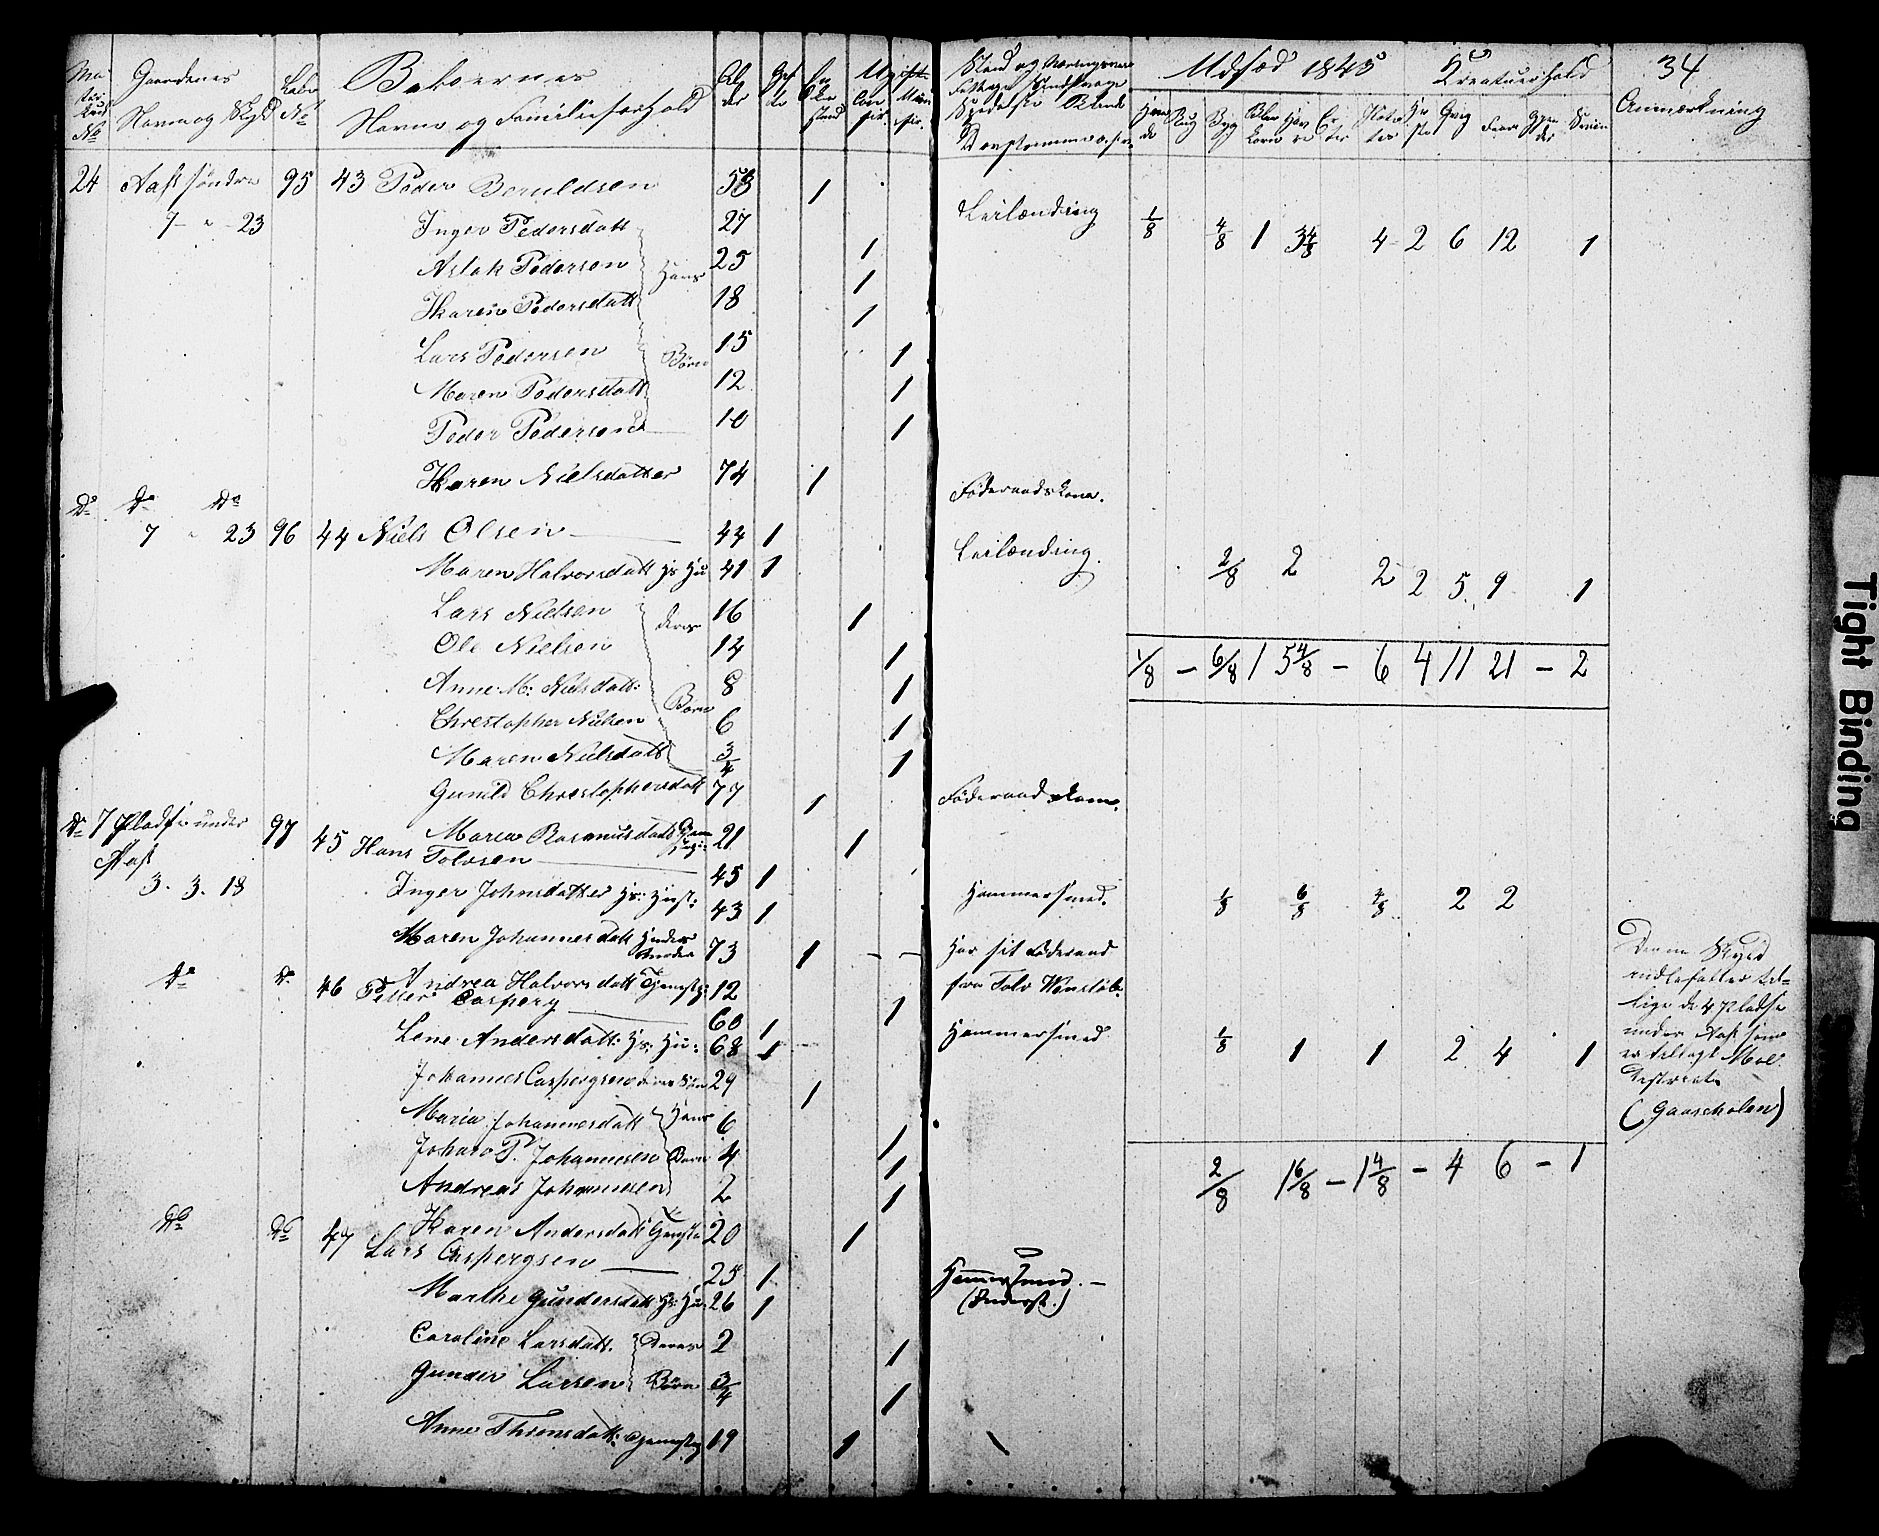 34
Gaardenes
Navn og Skyld
Beboernes
Navne og Familieforhold
Udsæd 1845 Kreaturhold
Anmærkning
24 Aas søndre 95 43 Peder 53 1
7 - 23 Inger Pedersdatt 27 Leilænding 1/8 4/8 1 3 4/8 4 2 6 12 1
Aslak Pedersen Hans 25 1
Karen Pedersdatt 18 1
Lars Pedersen Børn 15 1
Maren Pedersdatt 12 1
Peder Pedersen 10 1
Karen Nielsdatter 74 1 Føderaadskone.
Do Do Do
7 " 23 96 44 Niels Olsen 44 1 Leilænding.
Maren Halvorsdatt Hs Hu 41 1 2/8 2 2 2 5 9 1
Lars Nielsen 16 1
Ole Nielsen deres 14 1
1/8 - 6/8 1 5 4/8 - 6 4 11 21 - 2
Anne M: Nielsdatt: 8 1
Christopher Nielsen Børn 6 1
Maren Nielsdatt 3/4 1
Gunild Christophersdatt 77 1 Føderaadskone.
Do 7 Pladse under 97 Maren Rasmusdatt 21 1
Aas 45 Hans Tolvsen 45 1
3. 3. 18 Inger Johnsdatter Hs: Hust: 43 1 Hammersmed. 1/8 6/8 4/8 2 2
Maren Johannesdatt 73 1 Har sit Føderaad
Do Do Andrea Halvorsdatt 12 1 fra Tolv
46 Petter Casperg 60 1
Lene Andersdatt: Hs: Hu: 68 1 Hammersmed 1/8 1 1 2 4 1
Johannes Caspergsen deres Søn 29 1
Maria Johannesdatt Hans 6 1
Johan P. Johannesen Børn 4 1
Andreas Johannesen 2 1
2/8 1 6/8 - 1 4/8 - 4 6 - 1
Denne Skyld
indbefatter til-
lige de 4 Pladse
under Aas som
er tillagt
(Gaaseholen)
Do Do Karen Andersdatt 20 1
47 Lars Caspergsen 25 1 Hammersmed. -
Marthe Gundersdatt Hs: Hu: 26 1 (Inderst.)
Caroline Larsdatt. Deres 2 1
Gunder Larsen Børn 3/4 1
Anne Thomsdatt: 19 1
Tight Binding